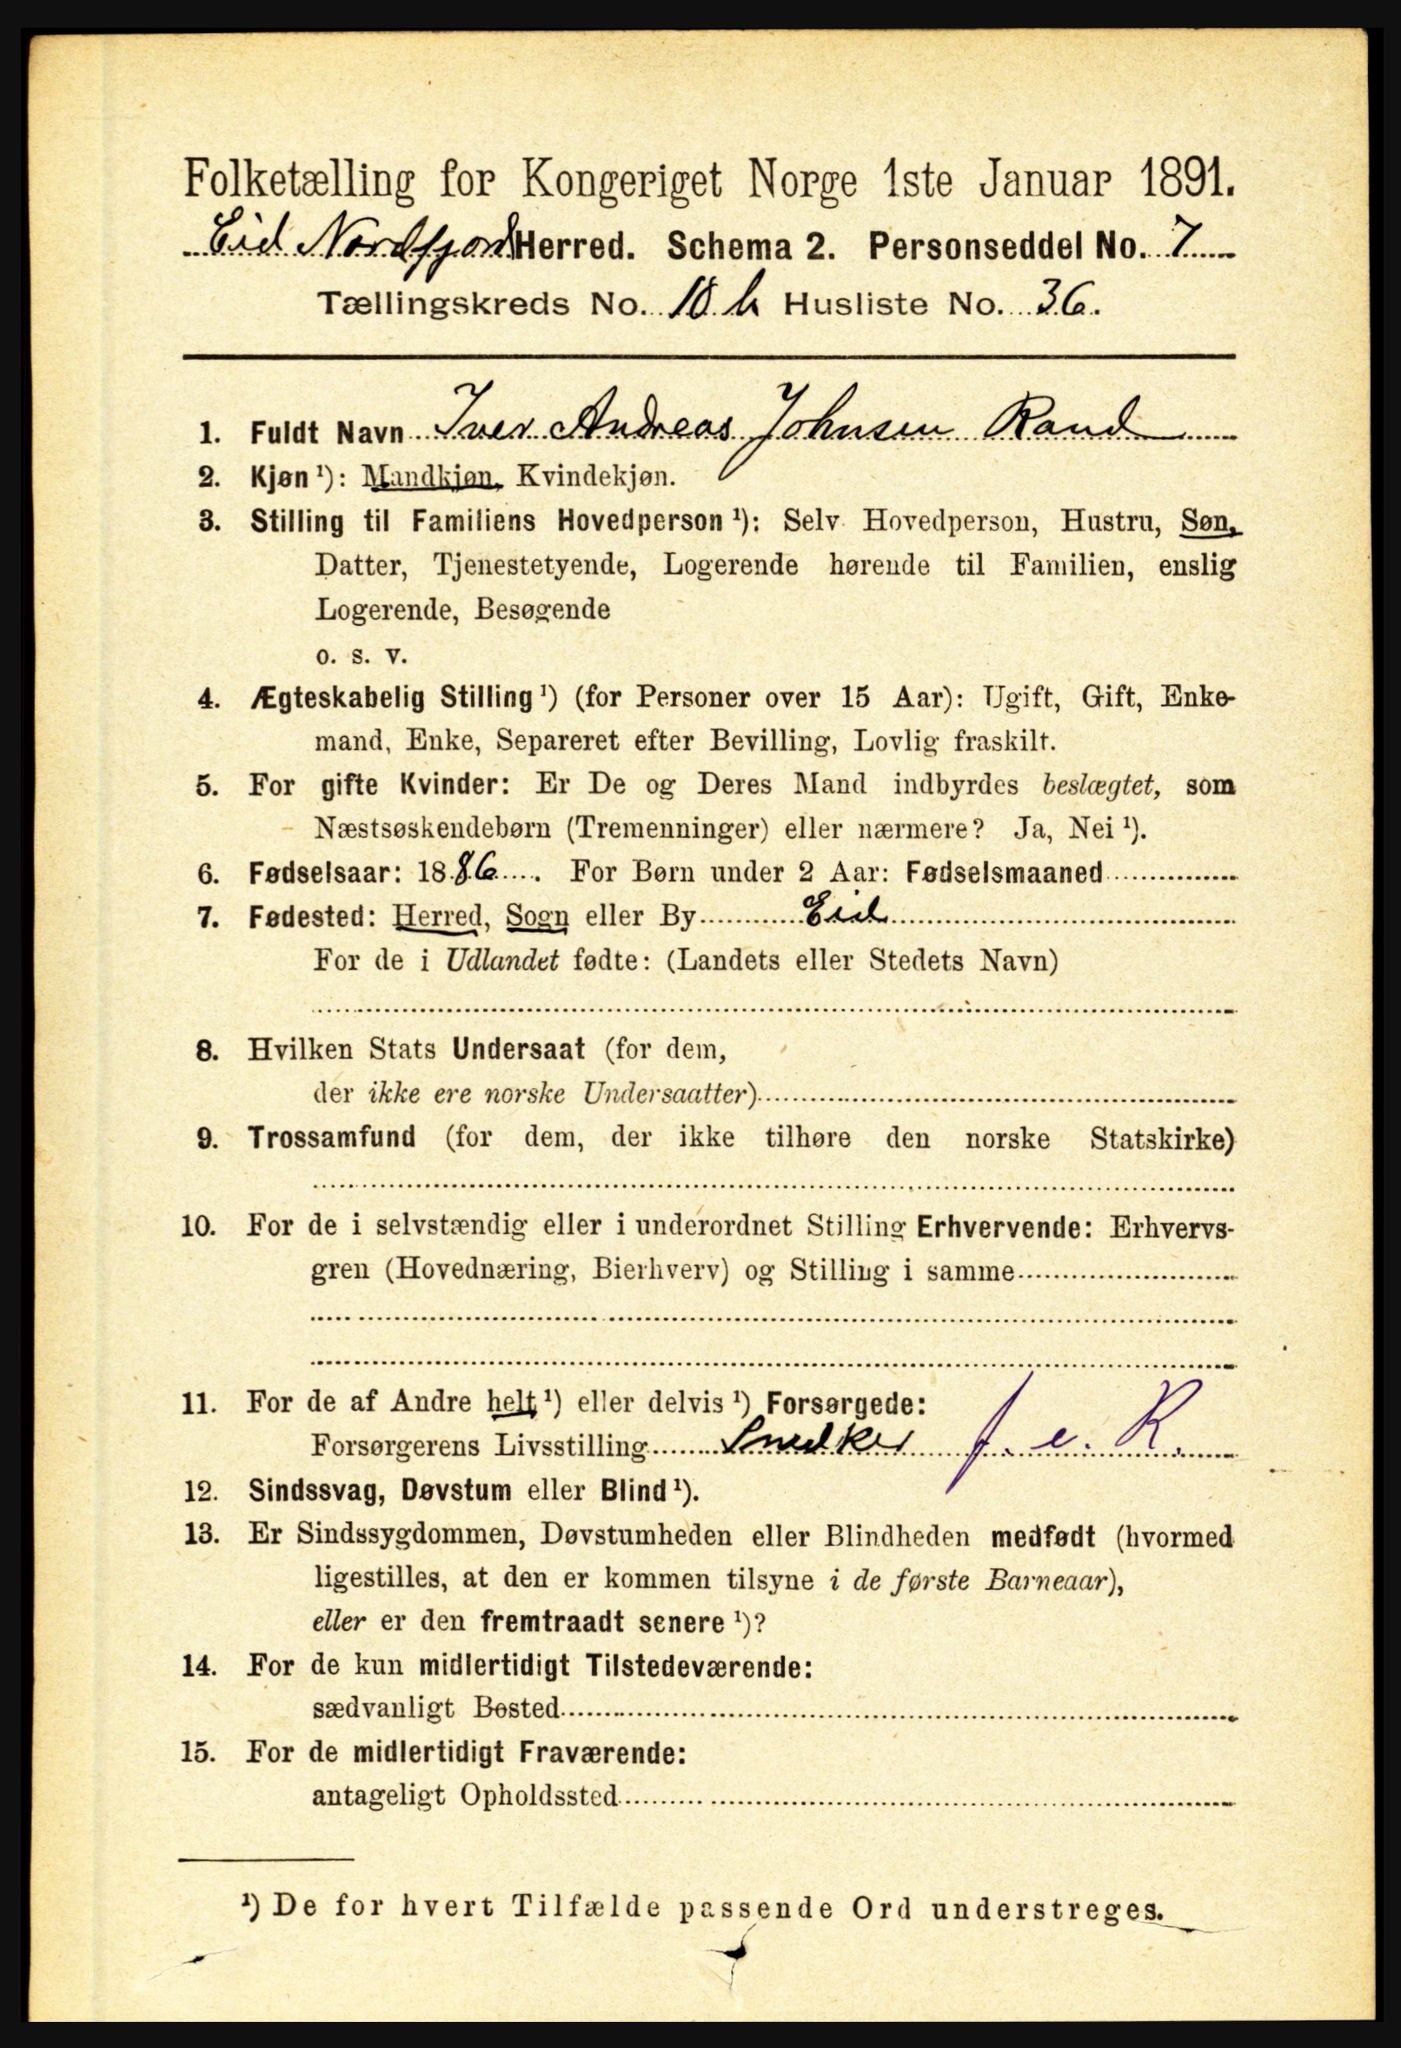 Folketælling for Kongeriget Norge 1ste Januar 1891.
Eid Nordfjord Herred. Schema 2. Personseddel No. 7
Tællingskreds No. 10 b Husliste No. 36.
1. Fuldt Navn Iver Andreas Johnsen Rand
2. Kjøn ¹): Mandkjøn, Kvindekjøn.
3. Stilling til Familiens Hovedperson ¹): Selv Hovedperson, Hustru, Søn,
Datter, Tjenestetyende, Logerende hørende til Familien, enslig
Logerende, Besøgende
o. s. v.
4. Ægteskabelig Stilling ¹) (for Personer over 15 Aar): Ugift, Gift, Enke-
mand, Enke, Separeret efter Bevilling, Lovlig fraskilt.
5. For gifte Kvinder: Er De og Deres Mand indbyrdes beslægtet, som
Næstsøskendebørn (Tremenninger) eller nærmere? Ja, Nei ¹).
6. Fødselsaar: 1886. For Børn under 2 Aar: Fødselsmaaned
7. Fødested: Herred, Sogn eller By Eid
For de i Udlandet fødte: (Landets eller Stedets Navn)
8. Hvilken Stats Undersaat (for dem,
der ikke ere norske Undersaatter)
9. Trossamfund (for dem, der ikke tilhøre den norske Statskirke)
10. For de i selvstændig eller i underordnet Stilling Erhvervende: Erhvervs-
gren (Hovednæring, Bierhverv) og Stilling i samme
11. For de af Andre helt ¹) eller delvis ¹) Forsørgede:
Forsørgerens Livsstilling Snedker f. e. R.
12. Sindssvag, Døvstum eller Blind ¹).
13. Er Sindssygdommen, Døvstumheden eller Blindheden medfødt (hvormed
ligestilles, at den er kommen tilsyne i de første Barneaar),
eller er den fremtraadt senere ¹)?
14. For de kun midlertidigt Tilstedeværende:
sædvanligt Bosted
15. For de midlertidigt Fraværende:
antageligt Opholdssted
¹) De for hvert Tilfælde passende Ord understreges.